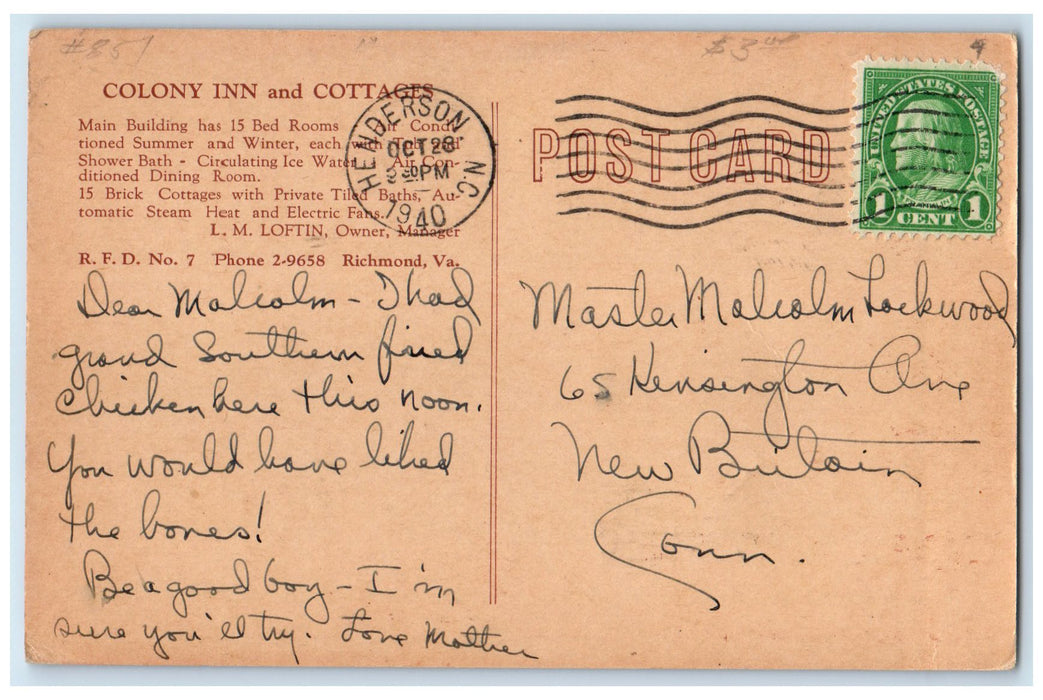 #857
$3.00
COLONY INN and COTTAGES
Main Building has 15 Bed Rooms Air Condi-
tioned Summer and Winter, each with Tub and
Shower Bath - Circulating Ice Water - Air Con-
ditioned Dining Room.
15 Brick Cottages with Private Tiled Baths, Au-
tomatic Steam Heat and Electric Fans.
L. M. LOFTIN, Owner, Manager
R. F. D. No. 7 Phone 2-9658 Richmond, Va.
HENDERSON N.C.
OCT 28
PM
1940
POST CARD
UNITED STATES POSTAGE
FRANKLIN
1 CENT 1
Dear Malcolm - I had
grand Southern fried
chicken here this noon.
You would have liked
the bones!
Be a good boy - I'm
sure you'll try. Love Mother
Master Malcolm Lockwood
65 Kensington Ave
New Britain
Conn.